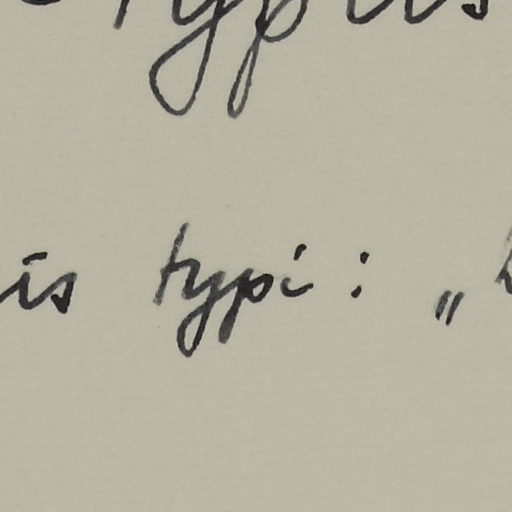 typus
is typi: „